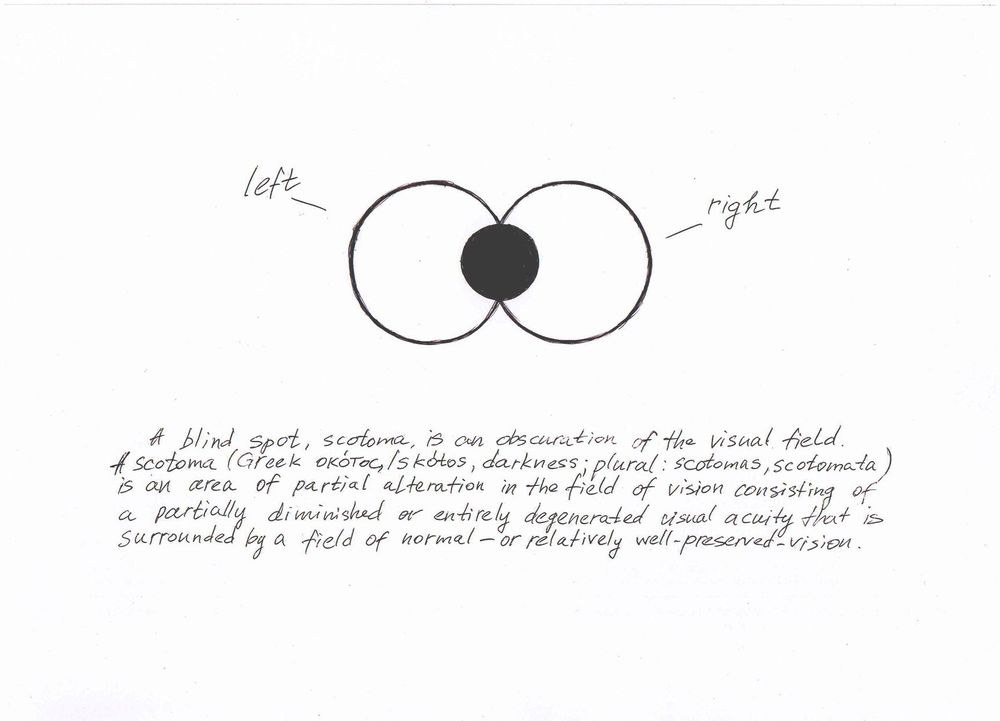 left
right
A blind spot, scotoma, is an obscuration of the visual field.
A scotoma (Greek σκότος/skótos, darkness; plural: scotomas, scotomata)
is an area of partial alteration in the field of vision consisting of
a partially diminished or entirely degenerated visual acuity that is
surrounded by a field of normal – or relatively well-preserved – vision.